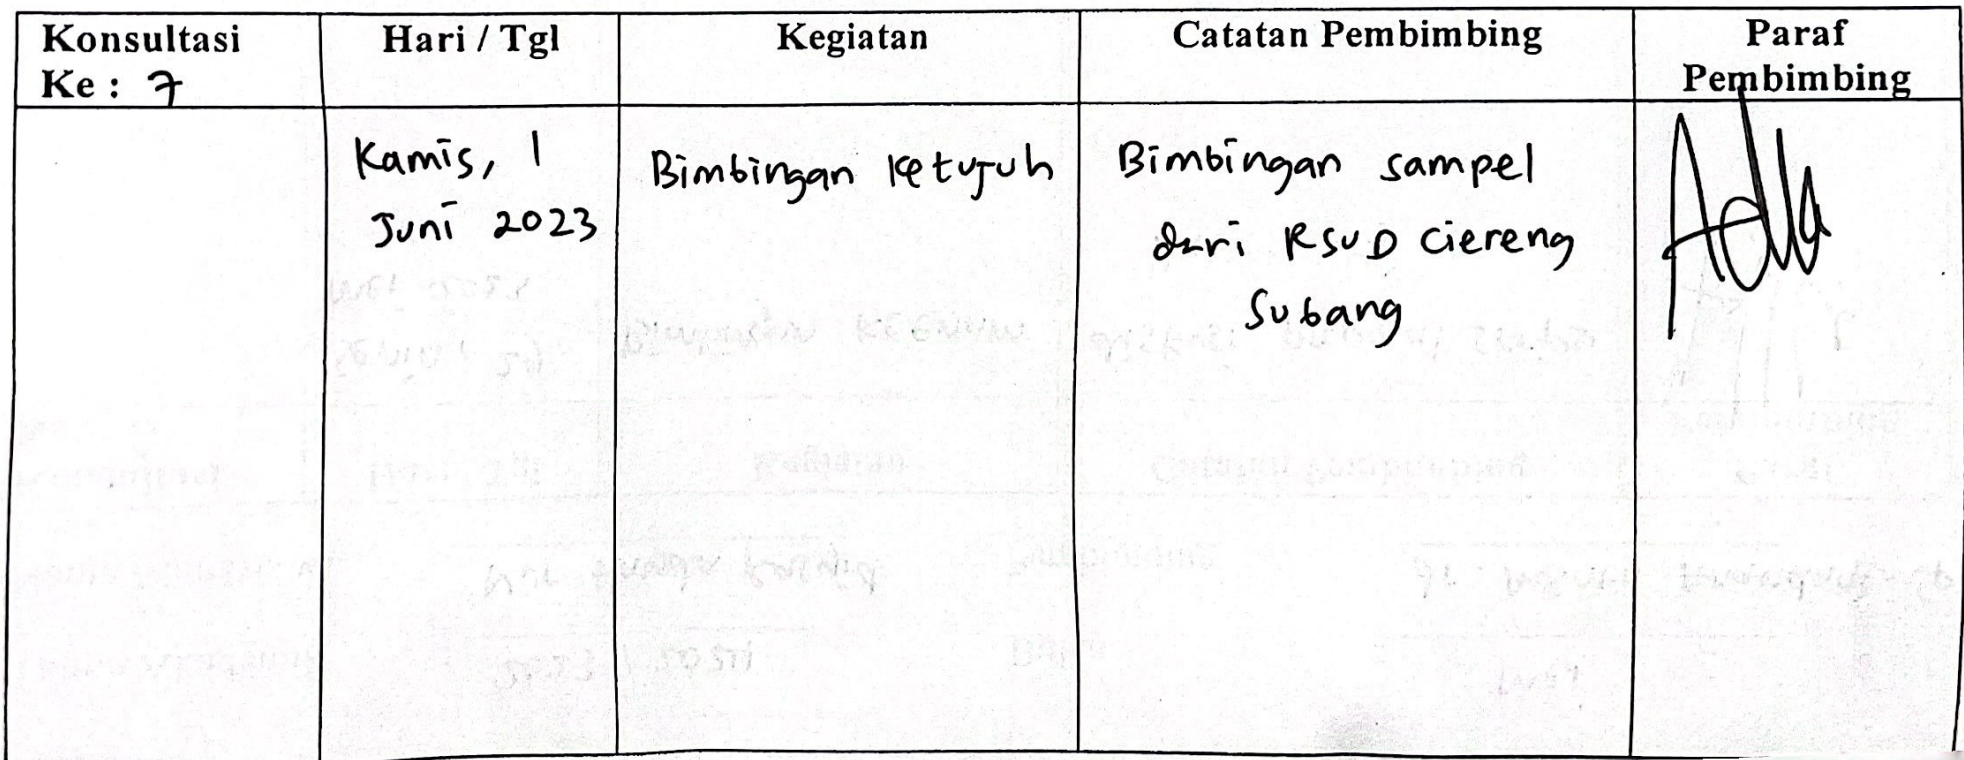 Konsultasi
Ke : 7
Hari / Tgl
Kegiatan
Catatan Pembimbing
Paraf
Pembimbing
Kamis, 1
Juni 2023
Bimbingan Ketujuh
Bimbingan sampel
dari RSUD Ciereng
Subang